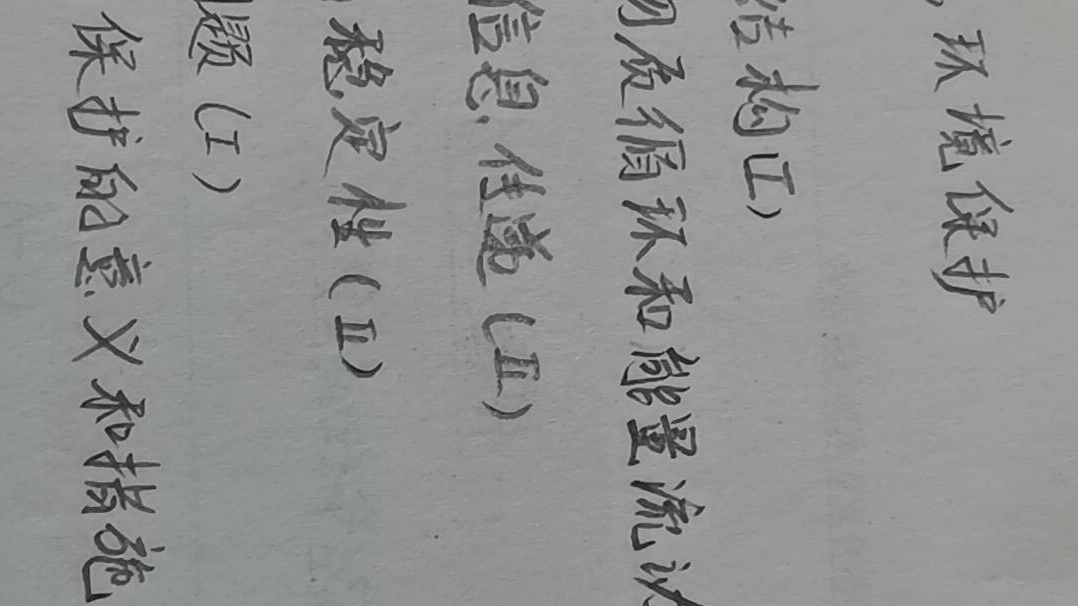 、环境保护
结构(I)
物质循环和能量流动
信息传递(II)
稳定性(II)
题(I)
保护的意义和措施